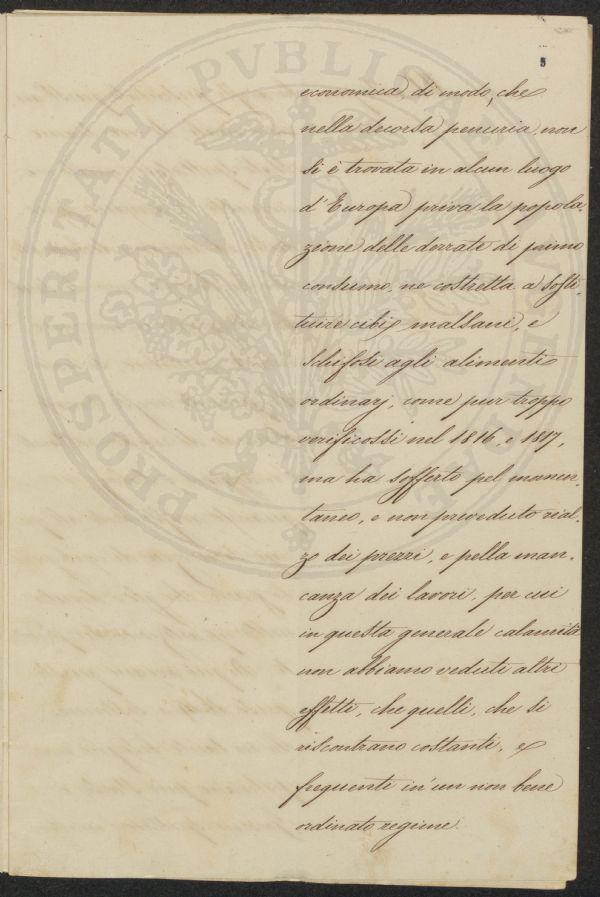 5
economica, di modo, che
nella decorsa penuria non
si è trovata in alcun luogo
d'Europa priva la popola-
zione delle derrate di primo
consumo, ne costretta a sosti-
tuire cibi malsani, e
schifosi agli alimenti
ordinarj, come pur troppo
verificossi nel 1816, e 1817,
ma ha sofferto pel momen-
taneo, e non preveduto rial-
zo dei prezzi, e pella man-
canza dei lavori, per cui
in questa generale calamità
non abbiamo veduti altri
effetti, che quelli, che si
riscontrano costanti, e
frequenti in'un non bene
ordinato regime.
PROSPERITATI PVBLICAE